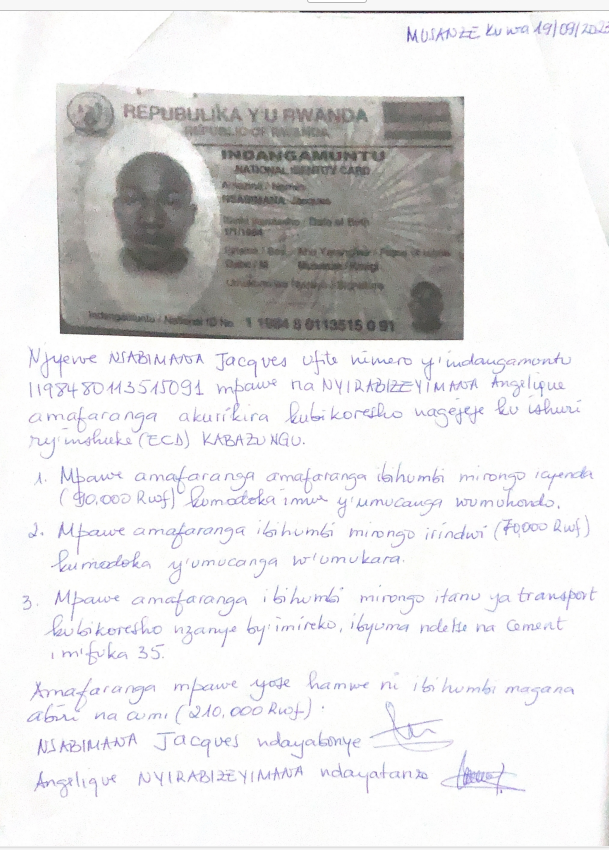 MUSANZE kuwa 19/09/2023
REPUBULIKA Y'U RWANDA
REPUBLIC OF RWANDA
INDANGAMUNTU
NATIONAL IDENTITY CARD
Amazina / Names
NSABIMANA Jacques
Date of Birth
1/1/1984
Gabo / M
Signature
Indangamuntu / National ID No. 1 1984 8 0113515 0 91
Njyewe NSABIMANA Jacques ufite nimero y'indangamuntu
1198480113515091 mpawe na NYIRABIZEYIMANA Angelique
amafaranga akurikira kubikoresho nagejeje ku ishuri
ry'inshuke (ECD) KABAZUNGU.
1. Mpawe amafaranga amafaranga ibihumbi mirongo icyenda
(90.000 Rwf) kumodoka imwe y'umucanga wumuhondo.
2. Mpawe amafaranga ibihumbi mirongo irindwi (70,000 Rwf)
kumodoka y'umucanga w'umukara.
3. Mpawe amafaranga ibihumbi mirongo itanu ya transport
kubikoresho nzanye by'imireko, ibyuma ndetse na Cement
imifuka 35.
Amafaranga mpawe yose hamwe ni ibihumbi magana
abiri na cumi (210,000 Rwf).
NSABIMANA Jacques ndayabonye
Angelique NYIRABIZEYIMANA ndayatanze